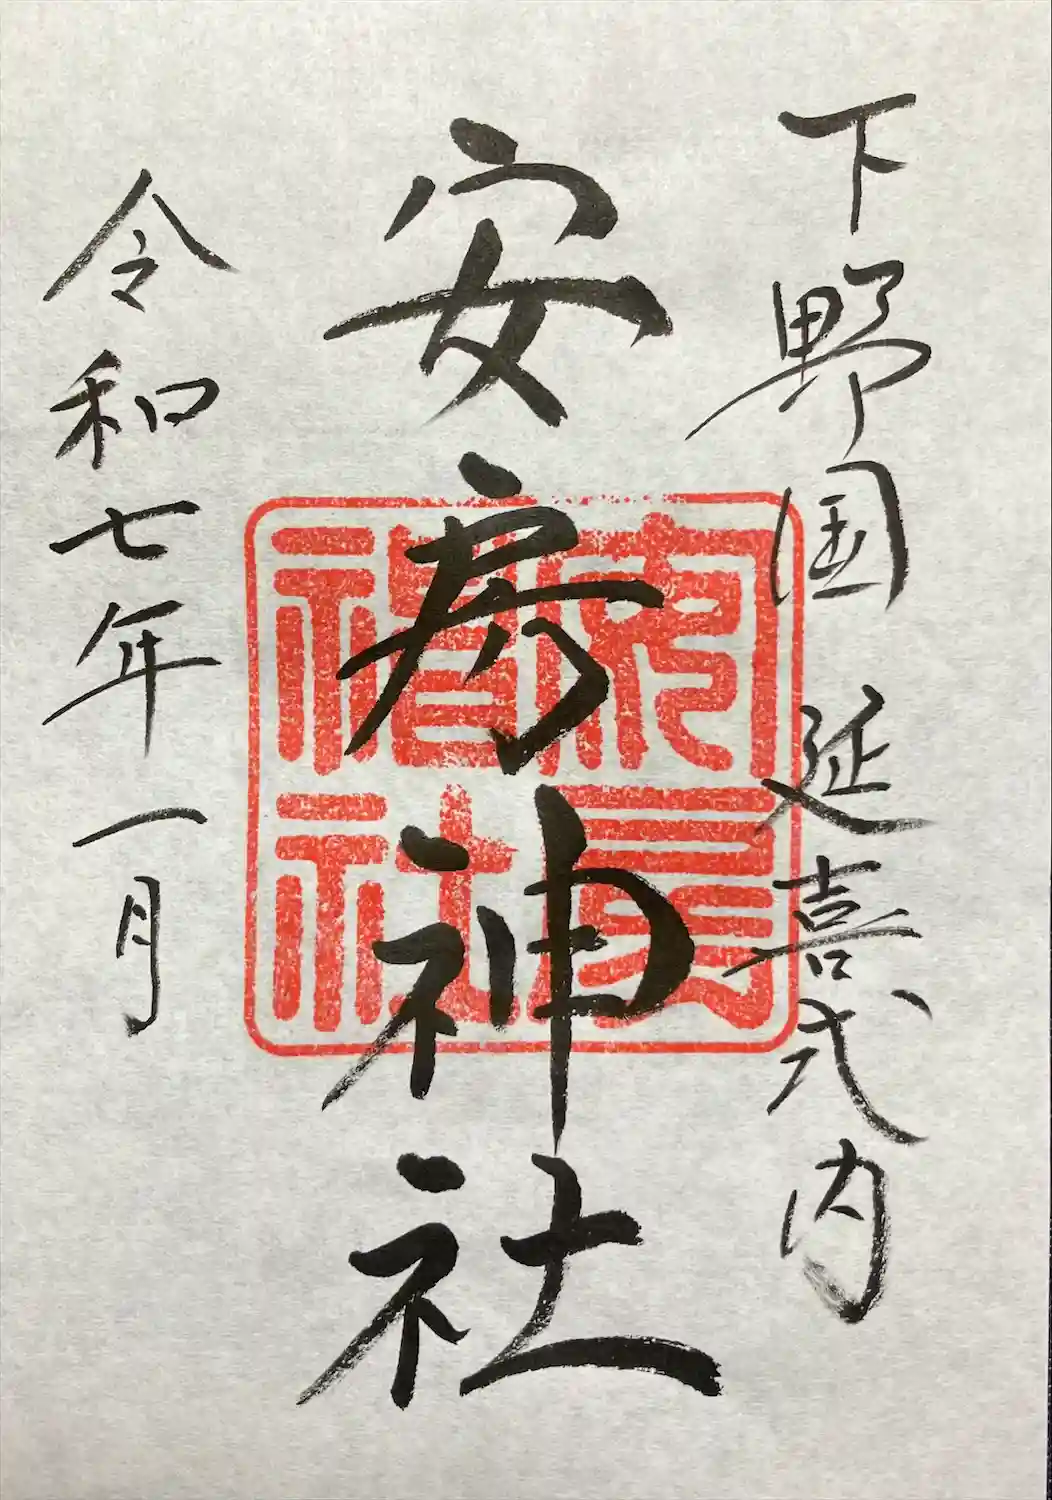 下野国 延喜式内
安房神社
令和七年一月